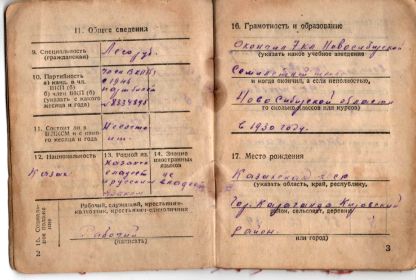 11. Общие сведения
9. Специальность
(гражданская)
Лесоруб.
10. Партийность
из канд. в чл.
ВКП (б)
б) член ВКП (б)
(указать с какого
месяца и года)
Член ВКП(б)
с 1946
№ 8334898
11. Состоит ли в
ВЛКСМ и с како-
го месяца и года
12. Национальность
Казах
13. Родной яз.
Казахс
и русским
14. Знание
иностранных
языков
не
владеет
15. Социаль-
ное положе-
ние
Рабочий, служащий, крестьянин-
колхозник, крестьянин-единоличник
Рабочий
(написать)
2
16. Грамотность и образование
Окончил 7 кл Новосибирской
(указать какое учебное заведение
и когда окончил, а если неполностью,
Новосибирской области
то сколько классов или курсов)
в 1930 году.
17. Место рождения
Казахская ССР
(указать область, край, республику,
Гор. Караганда Кировский
район, сельсовет, деревню
район.
или город)
3